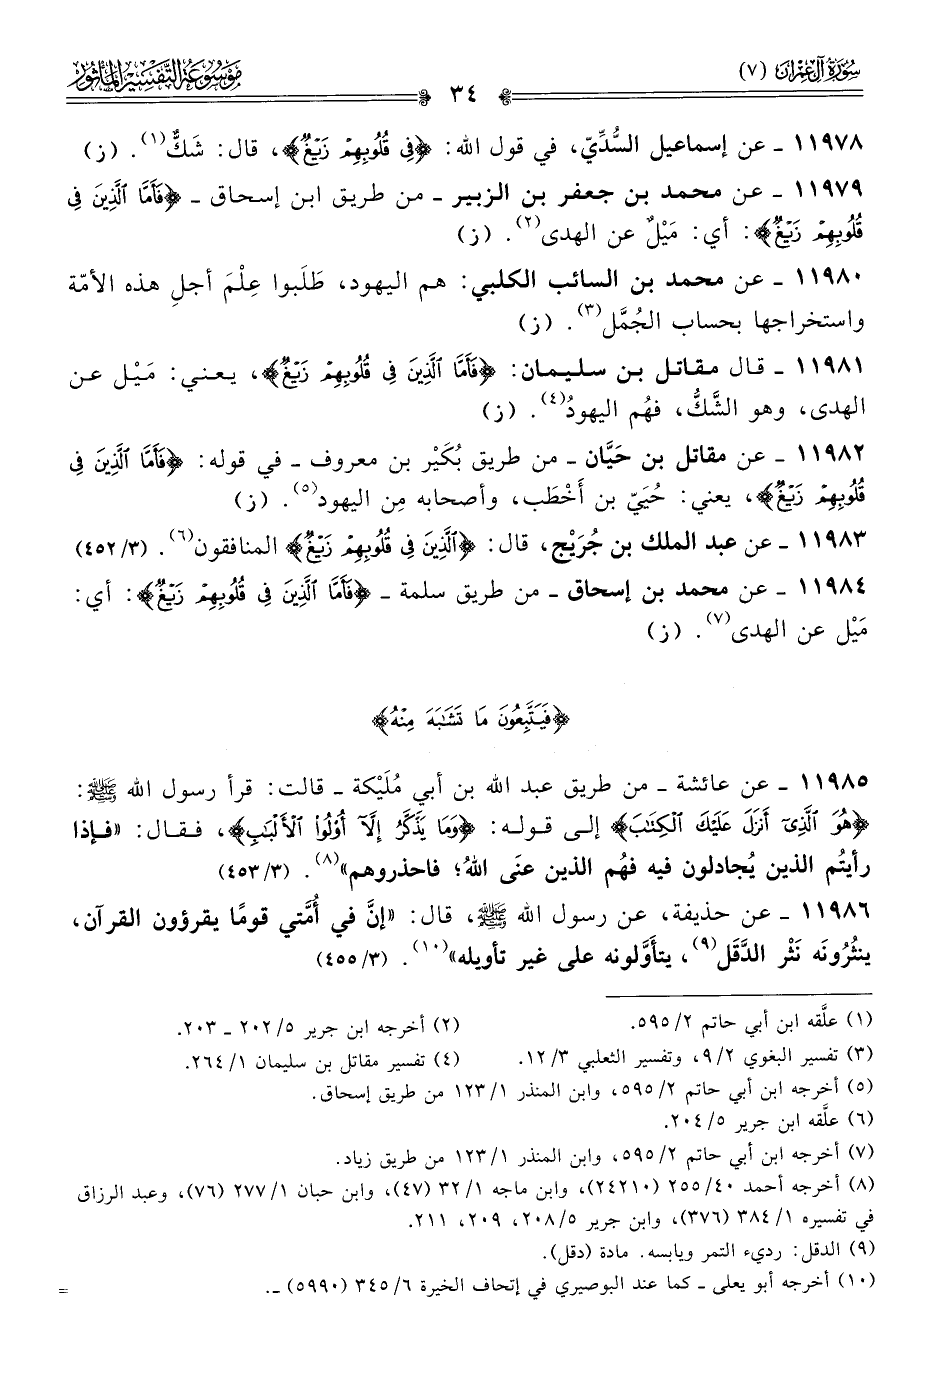 سُورَةُ آلِ عِمْرَان (٧)
مَوْسُوعَةُ التَّفْسِيرِ المَأْثُور
٣٤
١١٩٧٨ ـ عن إسماعيل السُّدِّيّ، في قول الله: ﴿فِى قُلُوبِهِمْ زَيْغٌ﴾، قال: شَكٌّ(١). (ز)
١١٩٧٩ ـ عن محمد بن جعفر بن الزبير ـ من طريق ابن إسحاق ـ ﴿فَأَمَّا ٱلَّذِينَ فِى
قُلُوبِهِمْ زَيْغٌ﴾: أي: مَيْلٌ عن الهدى(٢). (ز)
١١٩٨٠ ـ عن محمد بن السائب الكلبي: هم اليهود، طَلَبوا عِلْمَ أجلِ هذه الأمّة
واستخراجها بحساب الجُمَّل(٣). (ز)
١١٩٨١ ـ قال مقاتل بن سليمان: ﴿فَأَمَّا ٱلَّذِينَ فِى قُلُوبِهِمْ زَيْغٌ﴾، يعني: مَيْل عن
الهدى، وهو الشَّكُّ، فهُم اليهودُ(٤). (ز)
١١٩٨٢ ـ عن مقاتل بن حَيَّان ـ من طريق بُكَيْر بن معروف ـ في قوله: ﴿فَأَمَّا ٱلَّذِينَ فِى
قُلُوبِهِمْ زَيْغٌ﴾، يعني: حُيَيّ بن أَخْطَب، وأصحابه مِن اليهود(٥). (ز)
١١٩٨٣ ـ عن عبد الملك بن جُرَيْج، قال: ﴿ٱلَّذِينَ فِى قُلُوبِهِمْ زَيْغٌ﴾ المنافقون(٦). (٤٥٢/٣)
١١٩٨٤ ـ عن محمد بن إسحاق ـ من طريق سلمة ـ ﴿فَأَمَّا ٱلَّذِينَ فِى قُلُوبِهِمْ زَيْغٌ﴾: أي:
مَيْل عن الهدى(٧). (ز)
﴿فَيَتَّبِعُونَ مَا تَشَٰبَهَ مِنْهُ﴾
١١٩٨٥ ـ عن عائشة ـ من طريق عبد الله بن أبي مُلَيْكة ـ قالت: قرأ رسول الله ﷺ:
﴿هُوَ ٱلَّذِىٓ أَنزَلَ عَلَيْكَ ٱلْكِتَٰبَ﴾ إلى قوله: ﴿وَمَا يَذَّكَّرُ إِلَّآ أُو۟لُوا۟ ٱلْأَلْبَٰبِ﴾، فقال: «فإذا
رأيتُم الذين يُجادلون فيه فهُم الذين عنَى اللهُ؛ فاحذروهم»(٨). (٤٥٣/٣)
١١٩٨٦ ـ عن حذيفة، عن رسول الله ﷺ، قال: «إنَّ في أُمَّتي قومًا يقرؤون القرآن،
ينثُرُونَه نَثْر الدَّقَل(٩)، يتأوَّلونه على غير تأويله»(١٠). (٤٥٥/٣)
(١) علَّقه ابن أبي حاتم ٢/ ٥٩٥.
(٢) أخرجه ابن جرير ٥/ ٢٠٢ ـ ٢٠٣.
(٣) تفسير البغوي ٢/ ٩، وتفسير الثعلبي ٣/ ١٢.
(٤) تفسير مقاتل بن سليمان ١/ ٢٦٤.
(٥) أخرجه ابن أبي حاتم ٢/ ٥٩٥، وابن المنذر ١/ ١٢٣ من طريق إسحاق.
(٦) علَّقه ابن جرير ٥/ ٢٠٤.
(٧) أخرجه ابن أبي حاتم ٢/ ٥٩٥، وابن المنذر ١/ ١٢٣ من طريق زياد.
(٨) أخرجه أحمد ٤٠/ ٢٥٥ (٢٤٢١٠)، وابن ماجه ١/ ٣٢ (٤٧)، وابن حبان ١/ ٢٧٧ (٧٦)، وعبد الرزاق
في تفسيره ١/ ٣٨٤ (٣٧٦)، وابن جرير ٥/ ٢٠٨، ٢٠٩، ٢١١.
(٩) الدقل: رديء التمر ويابسه. مادة (دقل).
(١٠) أخرجه أبو يعلى ـ كما عند البوصيري في إتحاف الخيرة ٦/ ٣٤٥ (٥٩٩٠) ـ.
=